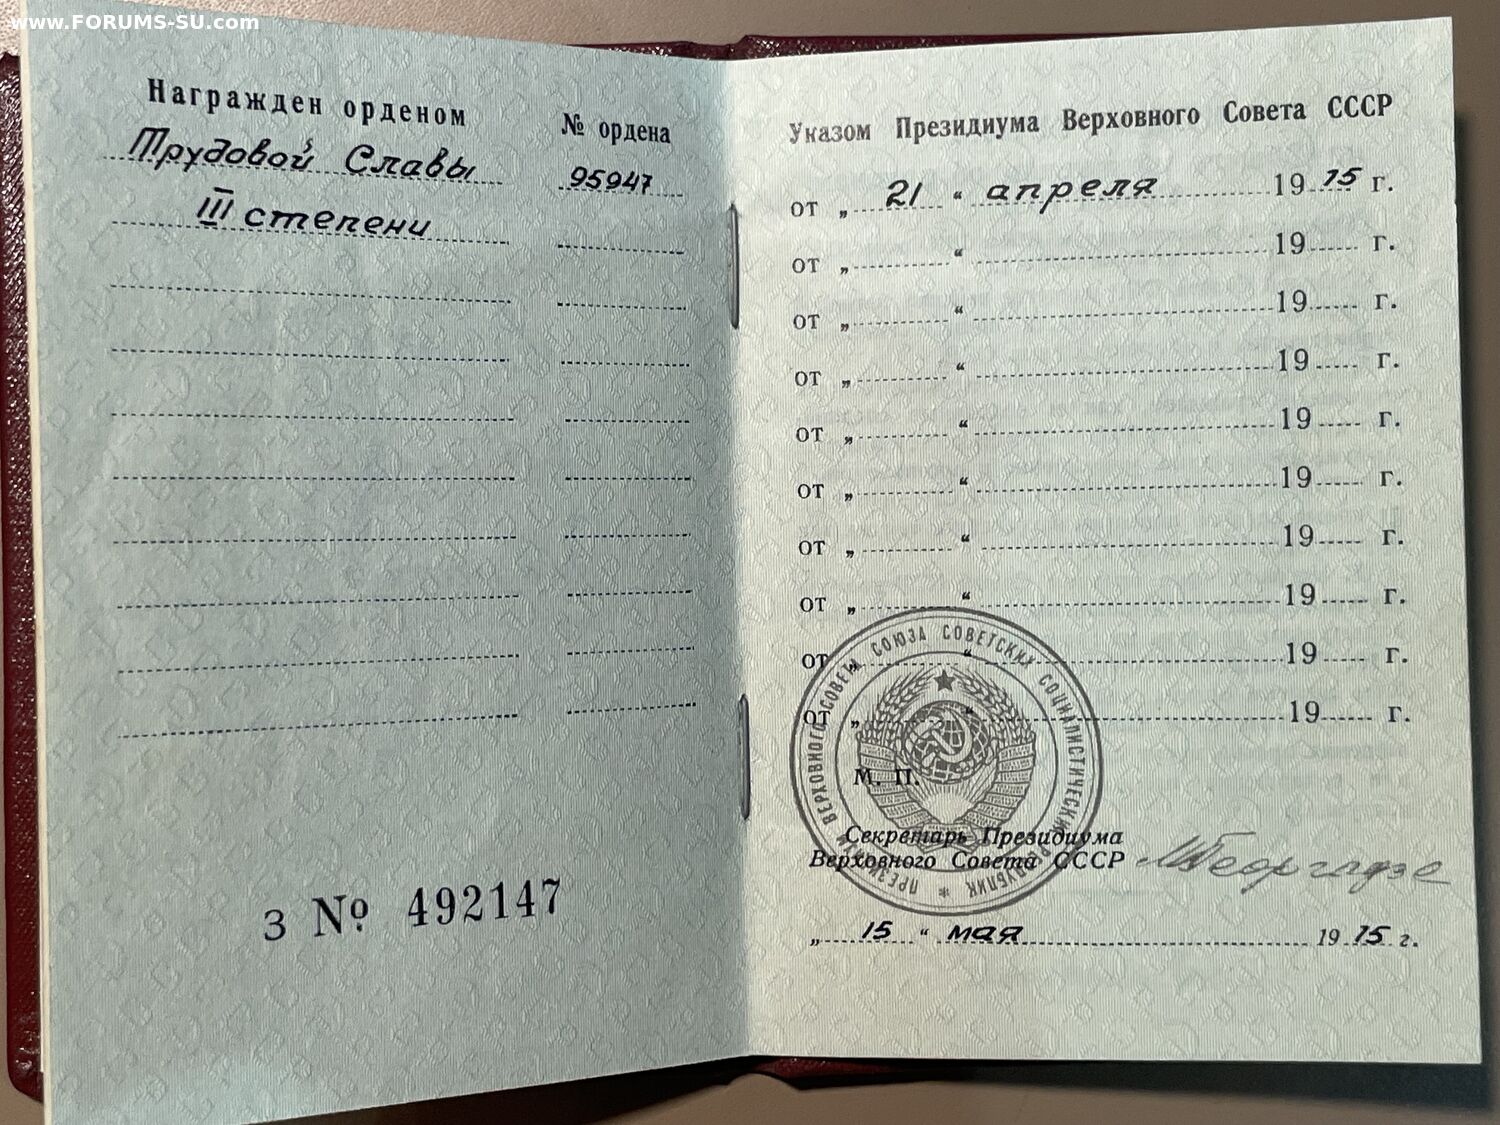 www.FORUMS-SU.com
Награжден орденом № ордена
Трудовой Славы 95947
III степени
З № 492147
Указом Президиума Верховного Совета СССР
от „ 21 “ апреля 19 75 г.
от „ “ 19 г.
от „ “ 19 г.
от „ “ 19 г.
от „ “ 19 г.
от „ “ 19 г.
от „ “ 19 г.
от „ “ 19 г.
от „ “ 19 г.
от „ “ 19 г.
ПРЕЗИДИУМ ВЕРХОВНОГО СОВЕТА СОЮЗА СОВЕТСКИХ СОЦИАЛИСТИЧЕСКИХ РЕСПУБЛИК *
М. П.
Секретарь Президиума
Верховного Совета СССР МГеоргадзе
„ 15 “ мая 19 75 г.